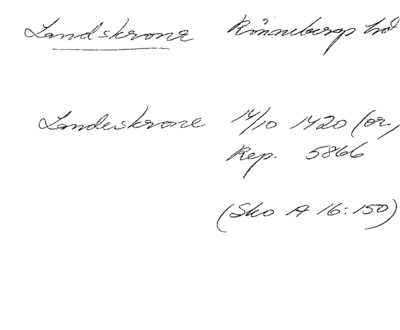 Landskrone Rönnebergs hd
Landeskrone 14/10 1420 (or.)
Rep. 5866
(Sko A 16:150)